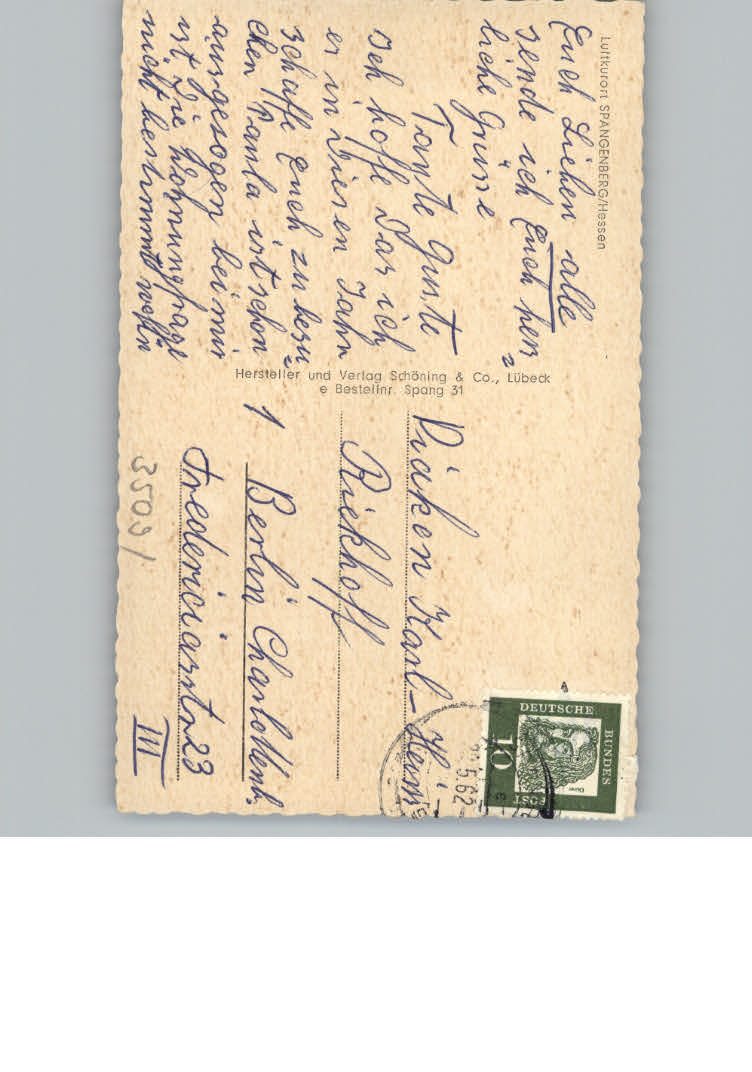 Luftkurort SPANGENBERG/Hessen
Euch Lieben alle
sende ich Euch herz
liche Grüsse
Tante Guste
Ich hoffe Das ich
es in Diesen Jahr
schaffe Euch zu besu
chen Paula ist schon
ausgesogen bei mir
ist Die Wohnungfrage
nicht bestimmt
Hersteller und Verlag Schöning & Co., Lübeck
e Bestellnr. Spang 31
Diakon Karl-Heinz
Riekhoff
1 Berlin Charlottenb.
Fredericiastr 23
III
3509/
DEUTSCHE
BUNDES
POST
10
Dürer
5.62